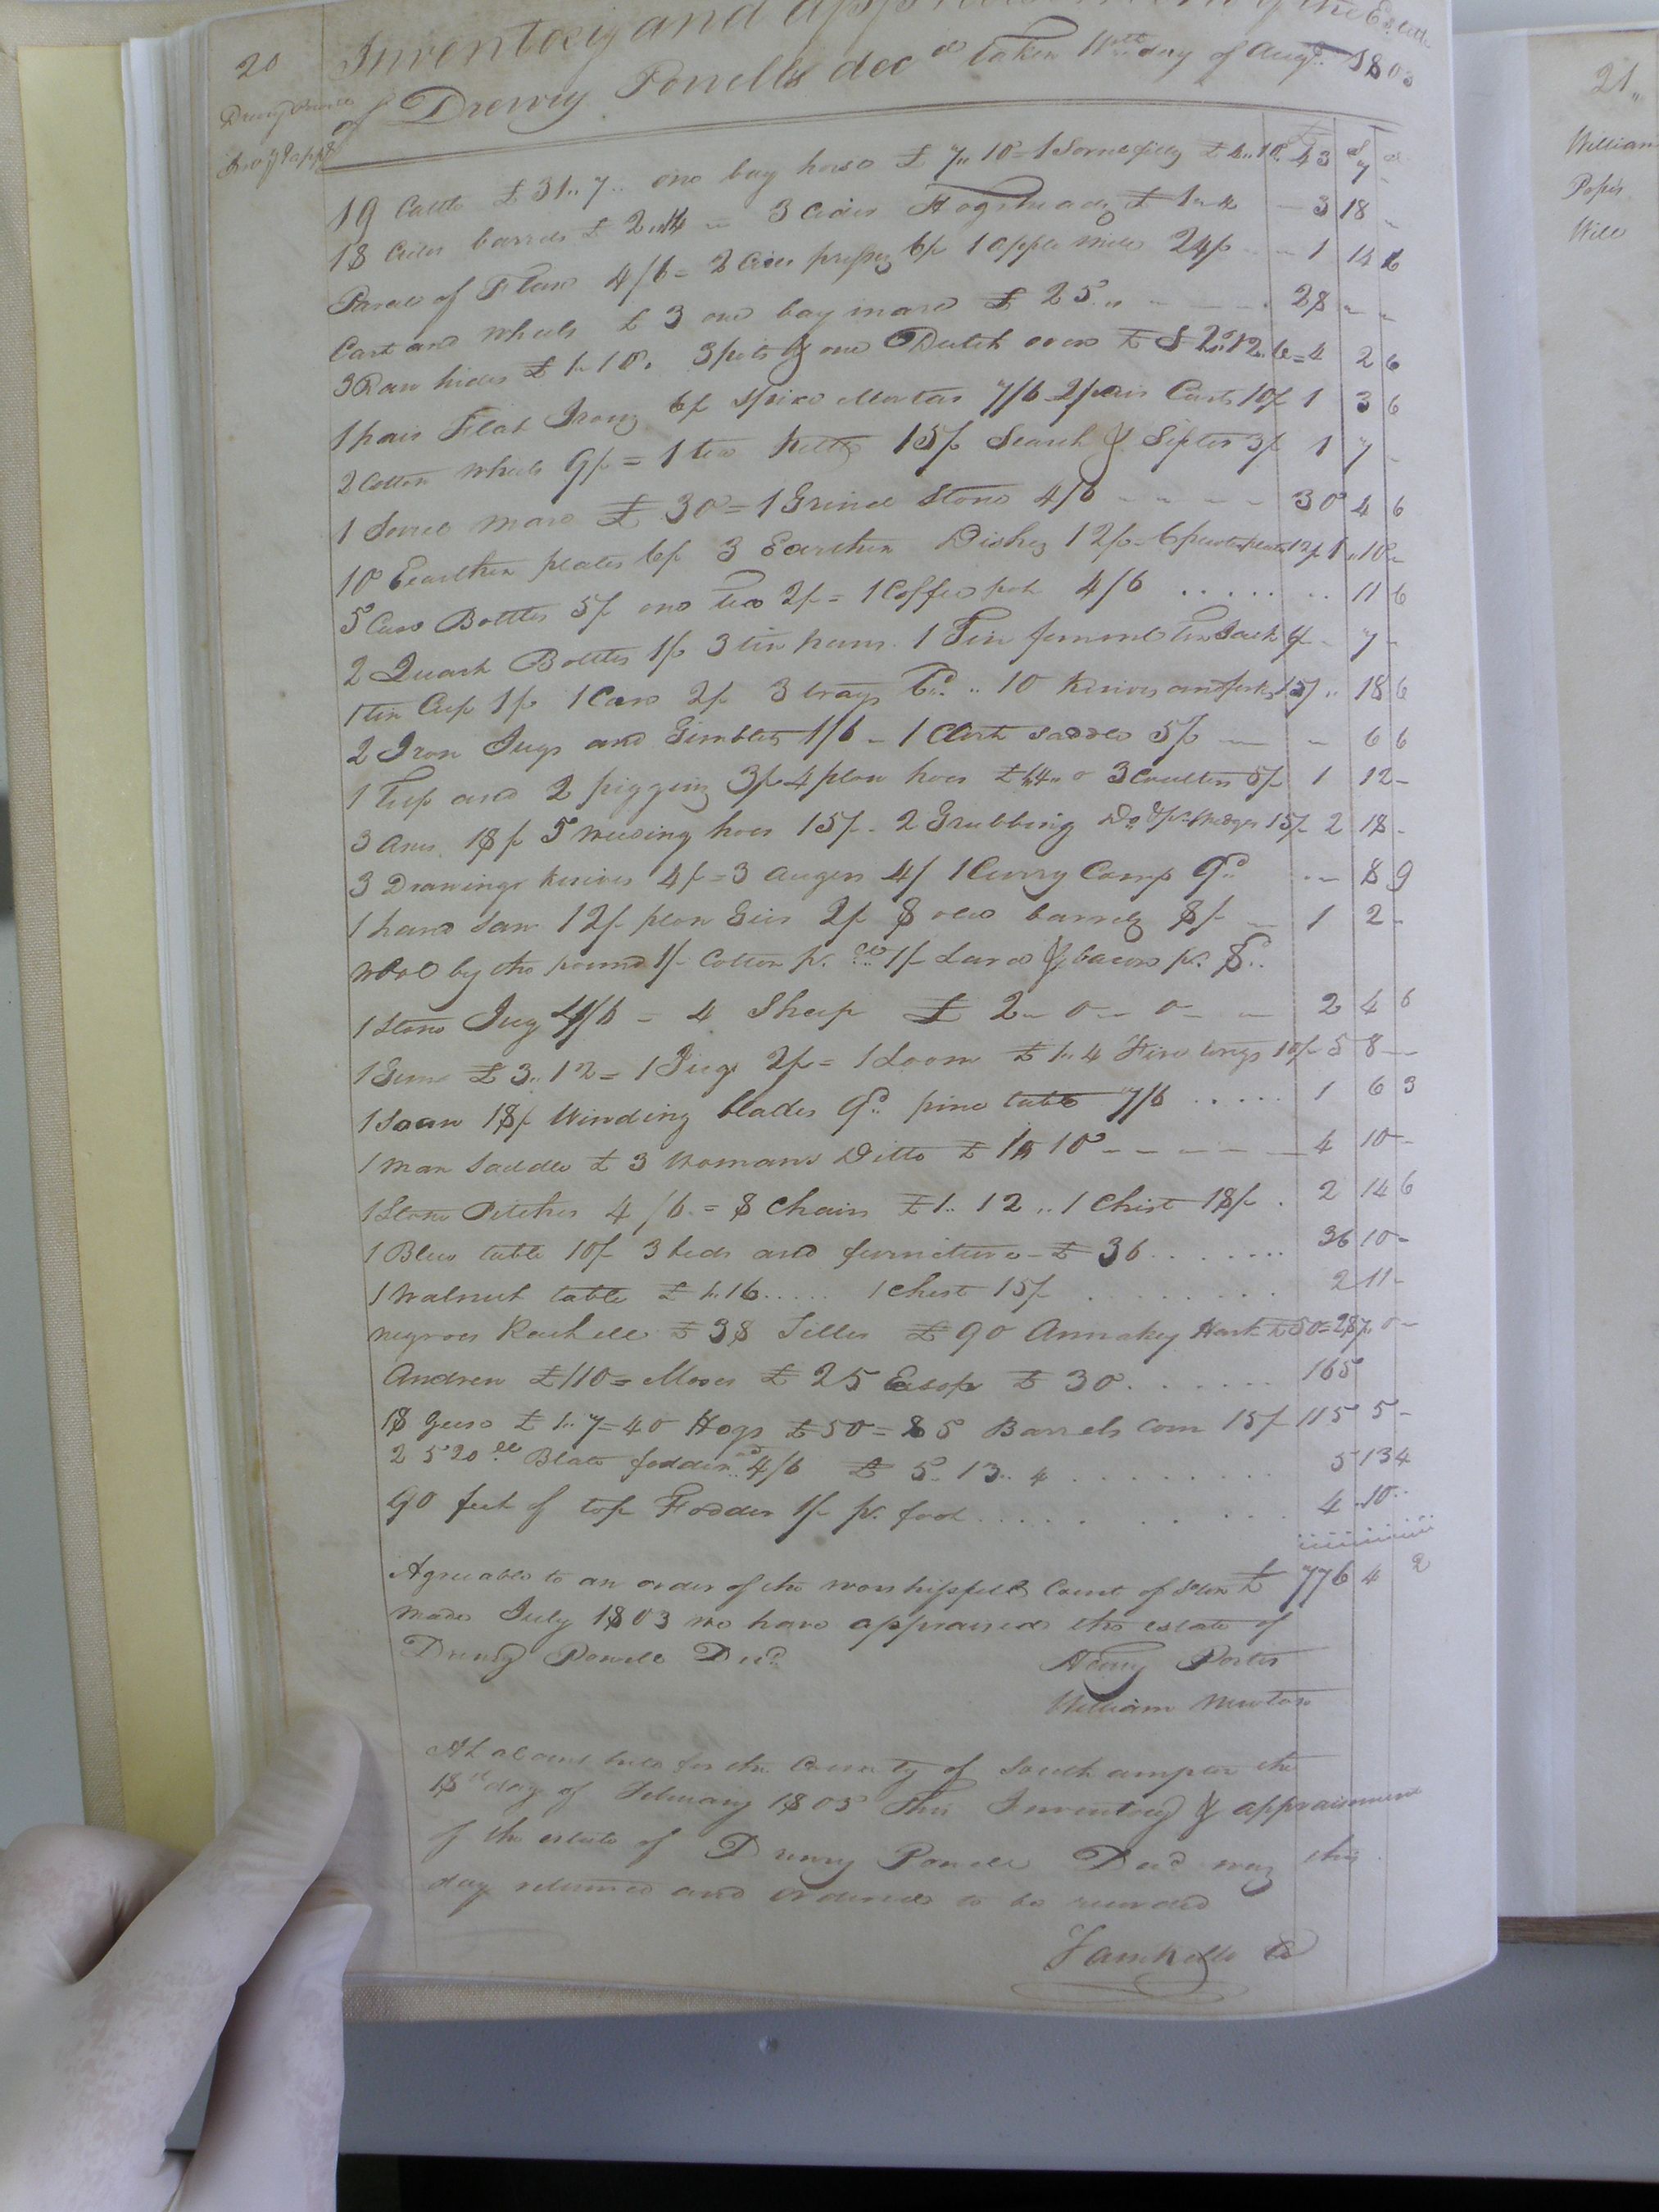 20
Inventory and appraisement of the Estate
Drury Powell
of Drewry Powells decd taken 11th day of Augt. 1803
Invy & appt
19 Cattle £31..7.. one bay horse £7..10 = 1 Sorrel filly £4..10 43 7 -
18 Cider barrels £2..14 - 3 Cider Hogsheads £1..4 - 3 18 -
Parcel of Flax 4/6 = 2 Cider presses 6/ 1 apple mill 24/ - - 1 14 6
Cart and wheels £3 one bay mare £25.. - - - 28 - -
3 Raw hides £1..10. 3 pots & one Dutch oven £2..12..6 = 4 2 6
1 pair Flat Irons 6/ spice Mortar 7/6 2 pair Cards 10/ 1 3 6
2 Cotton wheels 9/ = 1 tea Kettle 15/ Search & Sifter 3/ 1 7 -
1 Sorrel mare £30 = 1 Grind Stone 4/6 - - - - 30 4 6
10 Earthen plates 6/ 3 Earthen Dishes 12/ - 6 pewter plates 12/ 1..10 -
5 Case Bottles 5/ one Tea 2/ = 1 Coffee pot 4/6 ..... .. 11 6
2 Quart Bottles 1/ 3 tin pans 1 Tin funnel - 7 -
1 tin Cup 1/ 1 Case 2/ 3 trays 6d .. 10 Knives and forks 15/ .. 18 6
2 Iron Jugs and Gimblets 1/6 - 1 Cart saddle 5/ - - 6 6
1 Tup and 2 piggins 3/ 4 plow hoes £1..4..0 3 Coulters 5/ 1 12 -
3 Axes 18/ 5 weeding hoes 15/ - 2 Grubbing Do & pr Wedges 15/ 2 18 -
3 Drawing Knives 4/ = 3 augers 4/ 1 Curry Comp 9d .. - 8 9
1 hand saw 12/ plow Geer 2/ 8 old barrels 8/ - 1 2 -
wool by the pound 1/- Cotton pr. do 1/- Lard & bacon pr. 8d..
1 Stone Jug 4/6 = 4 Sheep £2 - 0 - 0 - - 2 4 6
1 Gun £3..12 = 1 Jug 2/ = 1 Loom £1..4 Fire tongs 10/ 5 8 -
1 Loan 18/ Winding blades 9d.. pine table 7/6 ..... 1 6 3
1 Man Saddle £3 Womans Ditto £1..10 - - - - - 4 10 -
1 Stone Pitcher 4/6. = 8 Chairs £1..12..1 Chest 18/ . 2 14 6
1 Blew table 10/ 3 beds and furniture - £36 ....... 36 10 -
1 Walnut table £1..16..... 1 Chest 15/ ......... 2 11 -
negroes Rachell £38 Siller £90 Annakey
Andrew £110 = Moses £25 Easop £30 ....... 165
18 Geese £1..7 = 40 Hogs £50 = 85 Barrels Corn 15/ 115 5 -
2520 ll Blade fodder 4/6 £5..13..4 ......... 5 13 4
90 feet of top Fodder 1/ pr. foot ........ 4..10..
Agreeable to an order of the worshipfull Court of Soton £ 776 4 2
made July 1803 we have appraised the estate of
Drury Powell Decd.
Henry Porter
William Newton
At a Court held for the County of Southampton the
18th day of February 1805 This Inventory & appraisement
of the estate of Drury Powell Decd was this
day returned and ordered to be recorded
Sam Kello CC
21
William
Pope's
Will